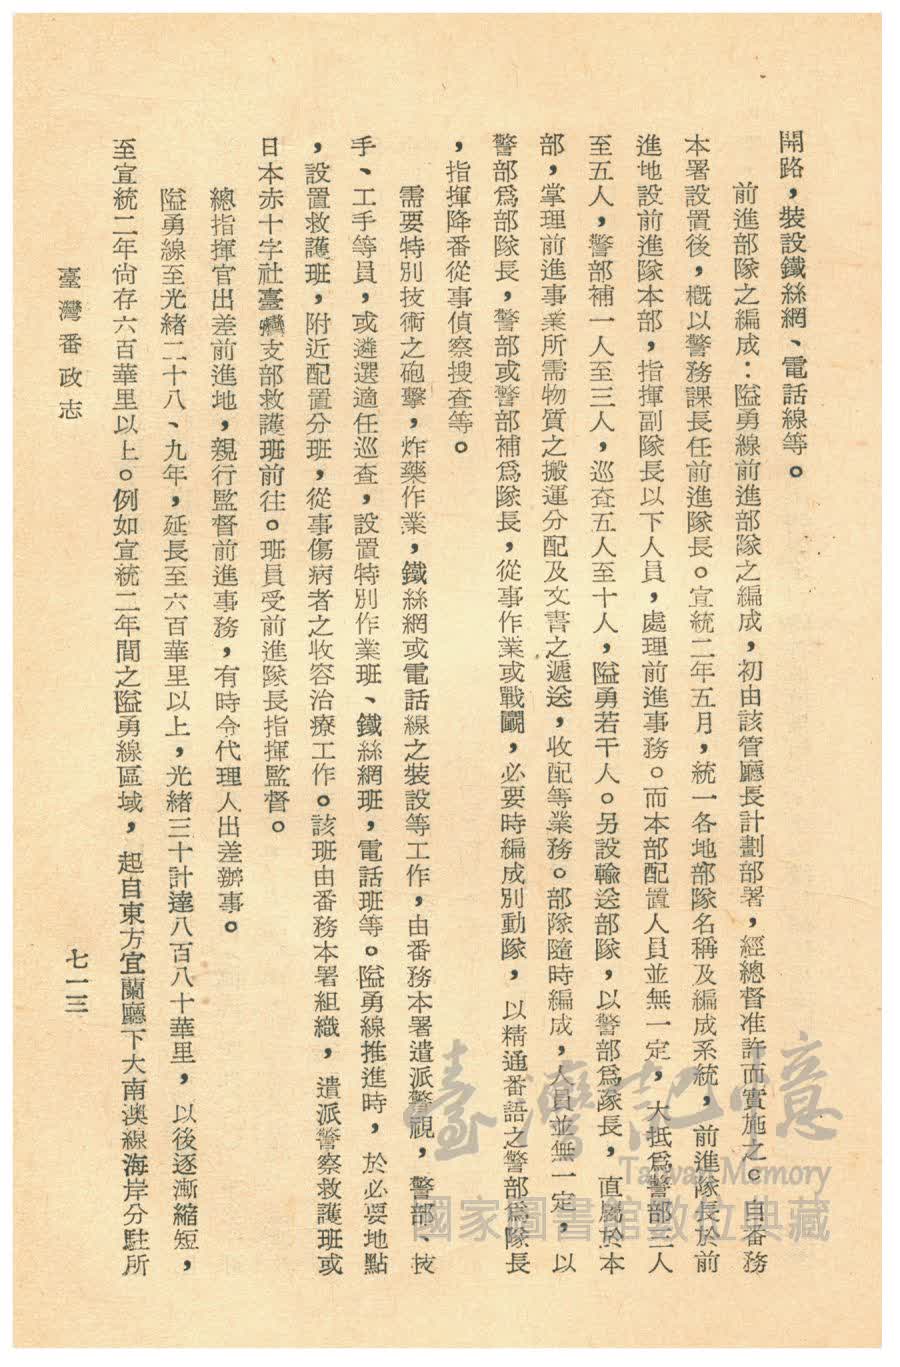 開路，裝設鐵絲網、電話線等。
前進部隊之編成：隘勇線前進部隊之編成，初由該管廳長計劃部署，經總督准許而實施之。自番務
本署設置後，概以警務課長任前進隊長。宣統二年五月，統一各地部隊名稱及編成系統，前進隊長於前
進地設前進隊本部，指揮副隊長以下人員，處理前進事務。而本部配置人員並無一定，大抵爲警部三人
至五人，警部補一人至三人，巡查五人至十人，隘勇若干人。另設輸送部隊，以警部爲隊長，直屬於本
部，掌理前進事業所需物質之搬運分配及文書之遞送，收配等業務。部隊隨時編成，人員並無一定，以
警部爲部隊長，警部或警部補爲隊長，從事作業或戰鬪，必要時編成別動隊，以精通番語之警部爲隊長
，指揮降番從事偵察搜查等。
需要特別技術之砲擊，炸藥作業，鐵絲網或電話線之裝設等工作，由番務本署遣派警視，警部、技
手、工手等員，或遴選適任巡查，設置特別作業班、鐵絲網班，電話班等。隘勇線推進時，於必要地點
，設置救護班，附近配置分班，從事傷病者之收容治療工作。該班由番務本署組織，遣派警察救護班或
日本赤十字社臺灣支部救護班前往。班員受前進隊長指揮監督。
總指揮官出差前進地，親行監督前進事務，有時令代理人出差辦事。
隘勇線至光緒二十八、九年，延長至六百華里以上，光緒三十計達八百八十華里，以後逐漸縮短，
至宣統二年尙存六百華里以上。例如宣統二年間之隘勇線區域，起自東方宜蘭廳下大南澳線海岸分駐所
臺灣番政志
七一三
臺灣記憶
Taiwan Memory
國家圖書館數位典藏